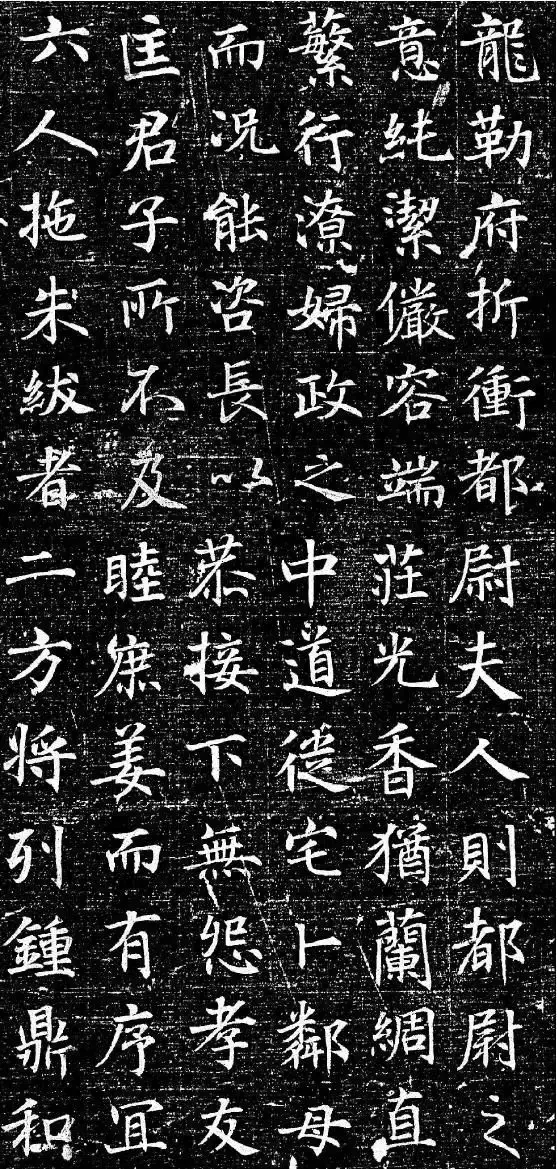 龍勒府折衝都尉夫人則都尉之
意純潔儼容端莊光香猶蘭綢直
蘩行潦婦政之中道徙宅卜鄰母
而況能咨長以恭接下無怨孝友
匡君子所不及睦庶姜而有序宜
六人拖朱紱者二方將列鍾鼎和